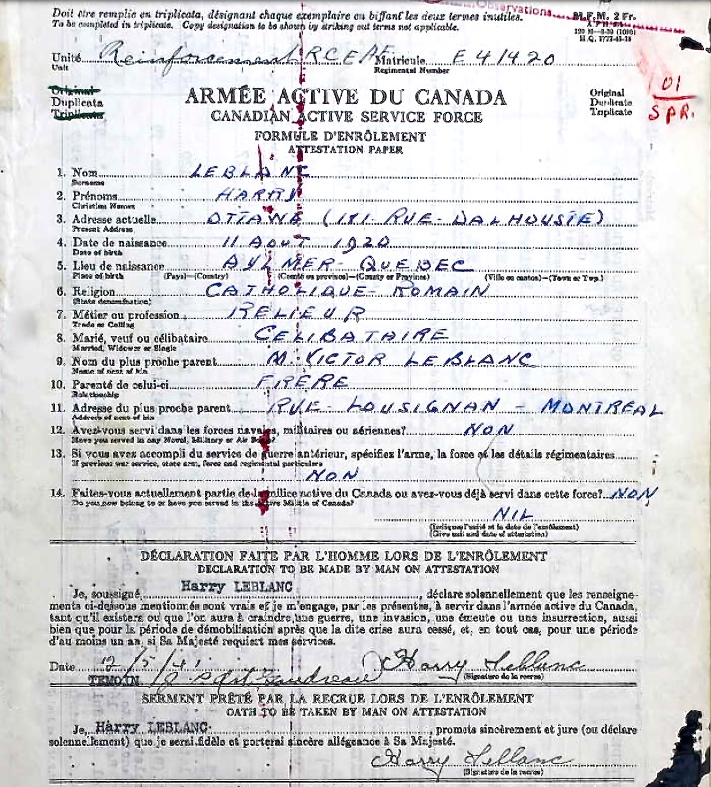 Doit être remplie en triplicata, désignant chaque exemplaire en biffant les deux termes inutiles.
To be completed in triplicate. Copy designation to be shown by striking out terms not applicable.
Observations
M.F.M. 2 Fr.
H.Q. 1772-45-18
Unité Reinforcement RCE Matricule E 41420
Unit Regimental Number
01
SPR.
Original
Duplicata
Triplicata
ARMÉE ACTIVE DU CANADA
CANADIAN ACTIVE SERVICE FORCE
FORMULE D'ENRÔLEMENT
ATTESTATION PAPER
Original
Duplicate
Triplicate
1. Nom LEBLANC
Surname
2. Prénoms HARRY
Christian Names
3. Adresse actuelle OTTAWA (181 RUE-DALHOUSIE)
Present Address
4. Date de naissance 11 AOUT 1920
Date of birth
5. Lieu de naissance AYLMER- QUEBEC
Place of birth (Pays)—(Country) (Comté ou province)—(County or Province) (Ville ou canton)—(Town or Twp.)
6. Religion CATHOLIQUE- ROMAIN
(State denomination)
7. Métier ou profession RELIEUR
Trade or Calling
8. Marié, veuf ou célibataire CELIBATAIRE
Married, Widower or Single
9. Nom du plus proche parent M. VICTOR LEBLANC
Name of next of kin
10. Parenté de celui-ci FRERE
Relationship
11. Adresse du plus proche parent RUE- LOUSIGNAN - MONTREAL
Address of next of kin
12. Avez-vous servi dans les forces navales, militaires ou aériennes? NON
Have you served in any Naval, Military or Air Force?
13. Si vous avez accompli du service de guerre antérieur, spécifiez l'arme, la force et les détails régimentaires
If previous war service, state arm, force and regimental particulars
NON
14. Faites-vous actuellement partie de la milice active du Canada ou avez-vous déjà servi dans cette force? NON
Do you now belong to or have you served in the Active Militia of Canada?
NIL
(Indiquer l'unité et la date de l'enrôlement)
(Give unit and date of attestation)
DÉCLARATION FAITE PAR L'HOMME LORS DE L'ENRÔLEMENT
DECLARATION TO BE MADE BY MAN ON ATTESTATION
Je, soussigné, Harry LEBLANC, déclare solennellement que les renseigne-
ments ci-dessous mentionnés sont vrais et je m'engage, par les présentes, à servir dans l'armée active du Canada,
tant qu'il existera ou que l'on aura à craindre une guerre, une invasion, une émeute ou une insurrection, aussi
bien que pour la période de démobilisation après que la dite crise aura cessé, et, en tout cas, pour une période
d'au moins un an, si Sa Majesté requiert mes services.
Date 12/5/41 Harry Leblanc
TEMOIN (Signature de la recrue)
SERMENT PRÊTÉ PAR LA RECRUE LORS DE L'ENRÔLEMENT
OATH TO BE TAKEN BY MAN ON ATTESTATION
Je, Harry LEBLANC, promets sincèrement et jure (ou déclare
solennellement) que je serai fidèle et porterai sincère allégeance à Sa Majesté.
Harry Leblanc
(Signature de la recrue)